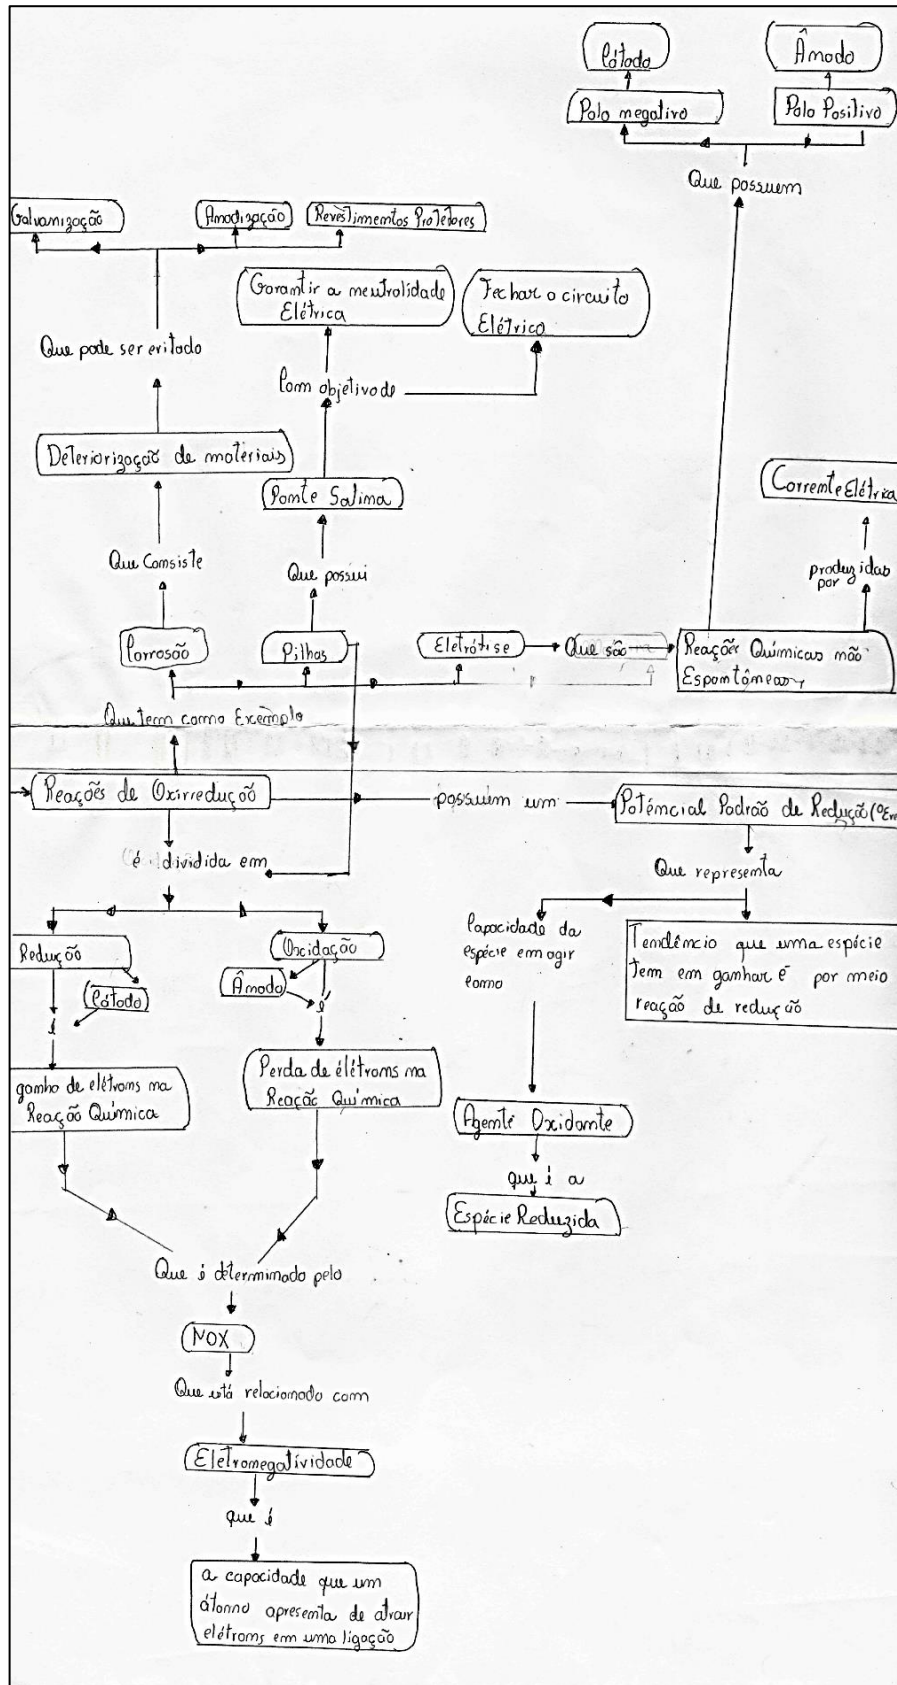 Cátodo
Ânodo
Polo negativo
Polo Positivo
Que possuem
Galvanização
Anodização
Revestimentos Protetores
Garantir a neutralidade
Elétrica
Fechar o circuito
Elétrico
Que pode ser evitado
Com objetivo de
Deteriorização de materiais
Ponte Salina
Corrente Elétrica
Que Consiste
Que possui
produzidas
por
Corrosão
Pilhas
Eletrólise
Que são
Reações Químicas não
Espontâneas
Que tem como Exemplo
Reações de Oxirredução
possuem um
Potêncial Padrão de Redução
é dividida em
Que representa
Redução
Oxidação
Capacidade da
espécie em agir
como
Tendência que uma espécie
tem em ganhar é por meio
reação de redução
Cátodo
Ânodo
é
é
ganho de elétrons na
Reação Química
Perda de elétrons na
Reação Química
Agente Oxidante
que é a
Espécie Reduzida
Que é determinado pelo
NOX
Que está relacionado com
Eletronegatividade
que é
a capacidade que um
átomo apresenta de atrair
elétrons em uma ligação